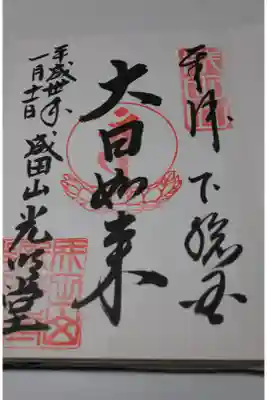 奉拝 下総国
大日如来
成田山光明堂
平成卅年
一月十一日